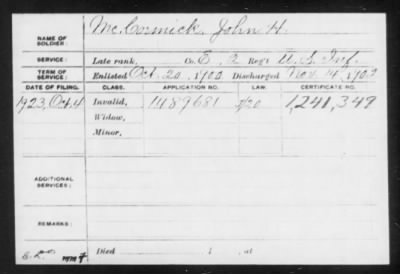 NAME OF SOLDIER: McCormick, John H.
SERVICE: Late rank, Co. E, 2 Reg't U.S. Inf.
TERM OF SERVICE: Enlisted Oct. 20, 1900 Discharged Nov. 14, 1902
DATE OF FILING. CLASS. APPLICATION NO. LAW. CERTIFICATE NO.
1923, Oct. 4 Invalid, 1489681 1,241,349
Widow,
Minor,
ADDITIONAL SERVICES:
REMARKS:
Died , at